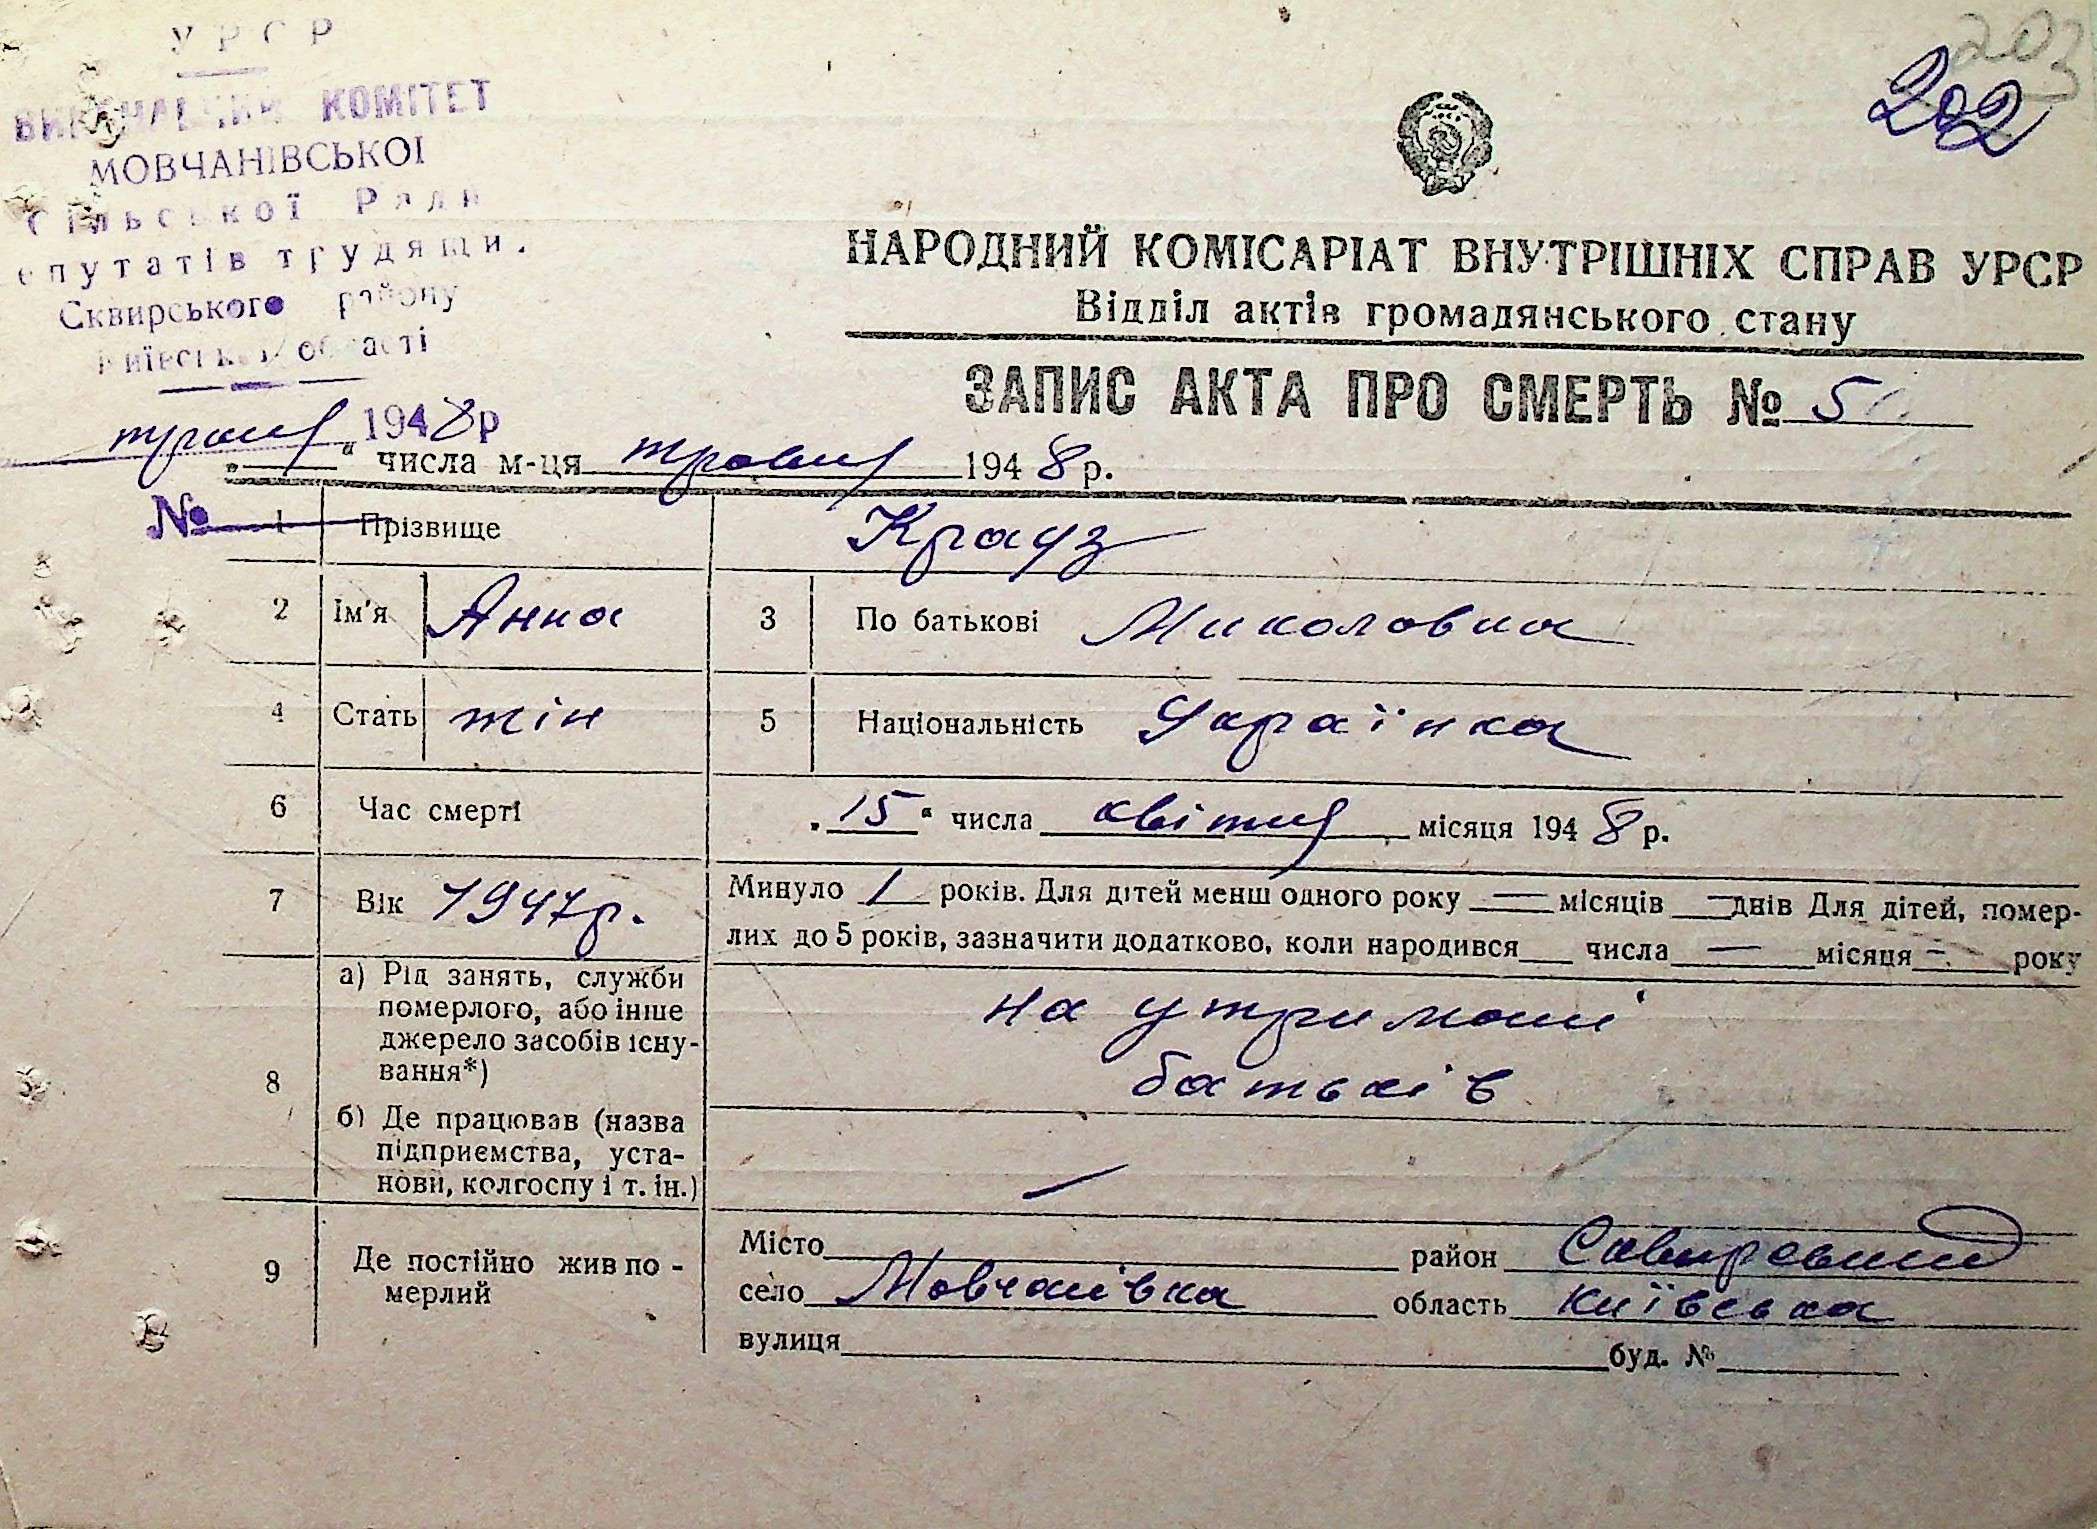 УРСР
ВИКОНАВЧИЙ КОМІТЕТ
МОВЧАНІВСЬКОЇ
Сільської Ради
епутатів трудящи.
Сквирського району
Київської області
203
202
НАРОДНИЙ КОМІСАРІАТ ВНУТРІШНІХ СПРАВ УРСР
Відділ актів громадянського стану
ЗАПИС АКТА ПРО СМЕРТЬ № 5
травня 1948р
„ “ числа м-ця травня 1948 р.
№
1 Прізвище Крауз
2 Ім'я Анна 3 По батькові Миколовна
4 Стать жін 5 Національність Українка
6 Час смерті „15“ числа квітня місяця 1948 р.
7 Вік 1947р. Минуло 1 років. Для дітей менш одного року — місяців — днів Для дітей, помер-
лих до 5 років, зазначити додатково, коли народився числа — місяця — року
8 а) Рід занять, служби
померлого, або інше
джерело засобів існу-
вання*)
на утриманні
батьків
б) Де працював (назва
підприємства, уста-
нови, колгоспу і т. ін.)
—
9 Де постійно жив по-
мерлий
Місто район Сквирський
село Мовчанівка область Київська
вулиця буд. №